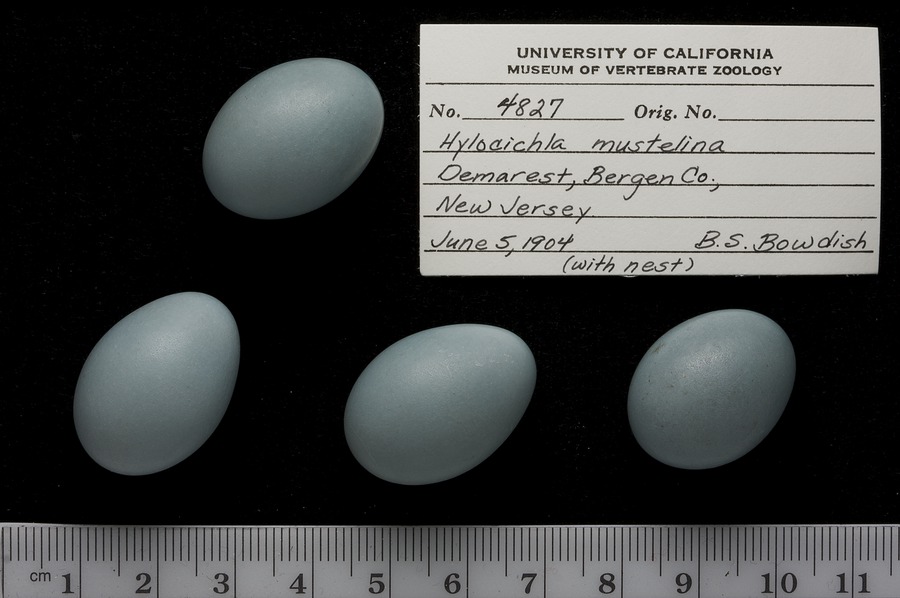 UNIVERSITY OF CALIFORNIA
MUSEUM OF VERTEBRATE ZOOLOGY
No. 4827 Orig. No.
Hylocichla mustelina
Demarest, Bergen Co.,
New Jersey
June 5, 1904 B.S. Bowdish
(with nest)
cm 1 2 3 4 5 6 7 8 9 10 11